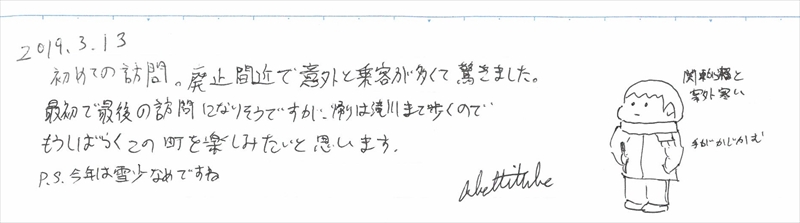 2019.3.13
初めての訪問。廃止間近で意外と乗客が多くて驚きました。
最初で最後の訪問になりそうですが、帰りは滝川まで歩くので
もうしばらくこの町を楽しみたいと思います。
P.S.今年は雪少なめですね
意外寒い
手がかじかむ